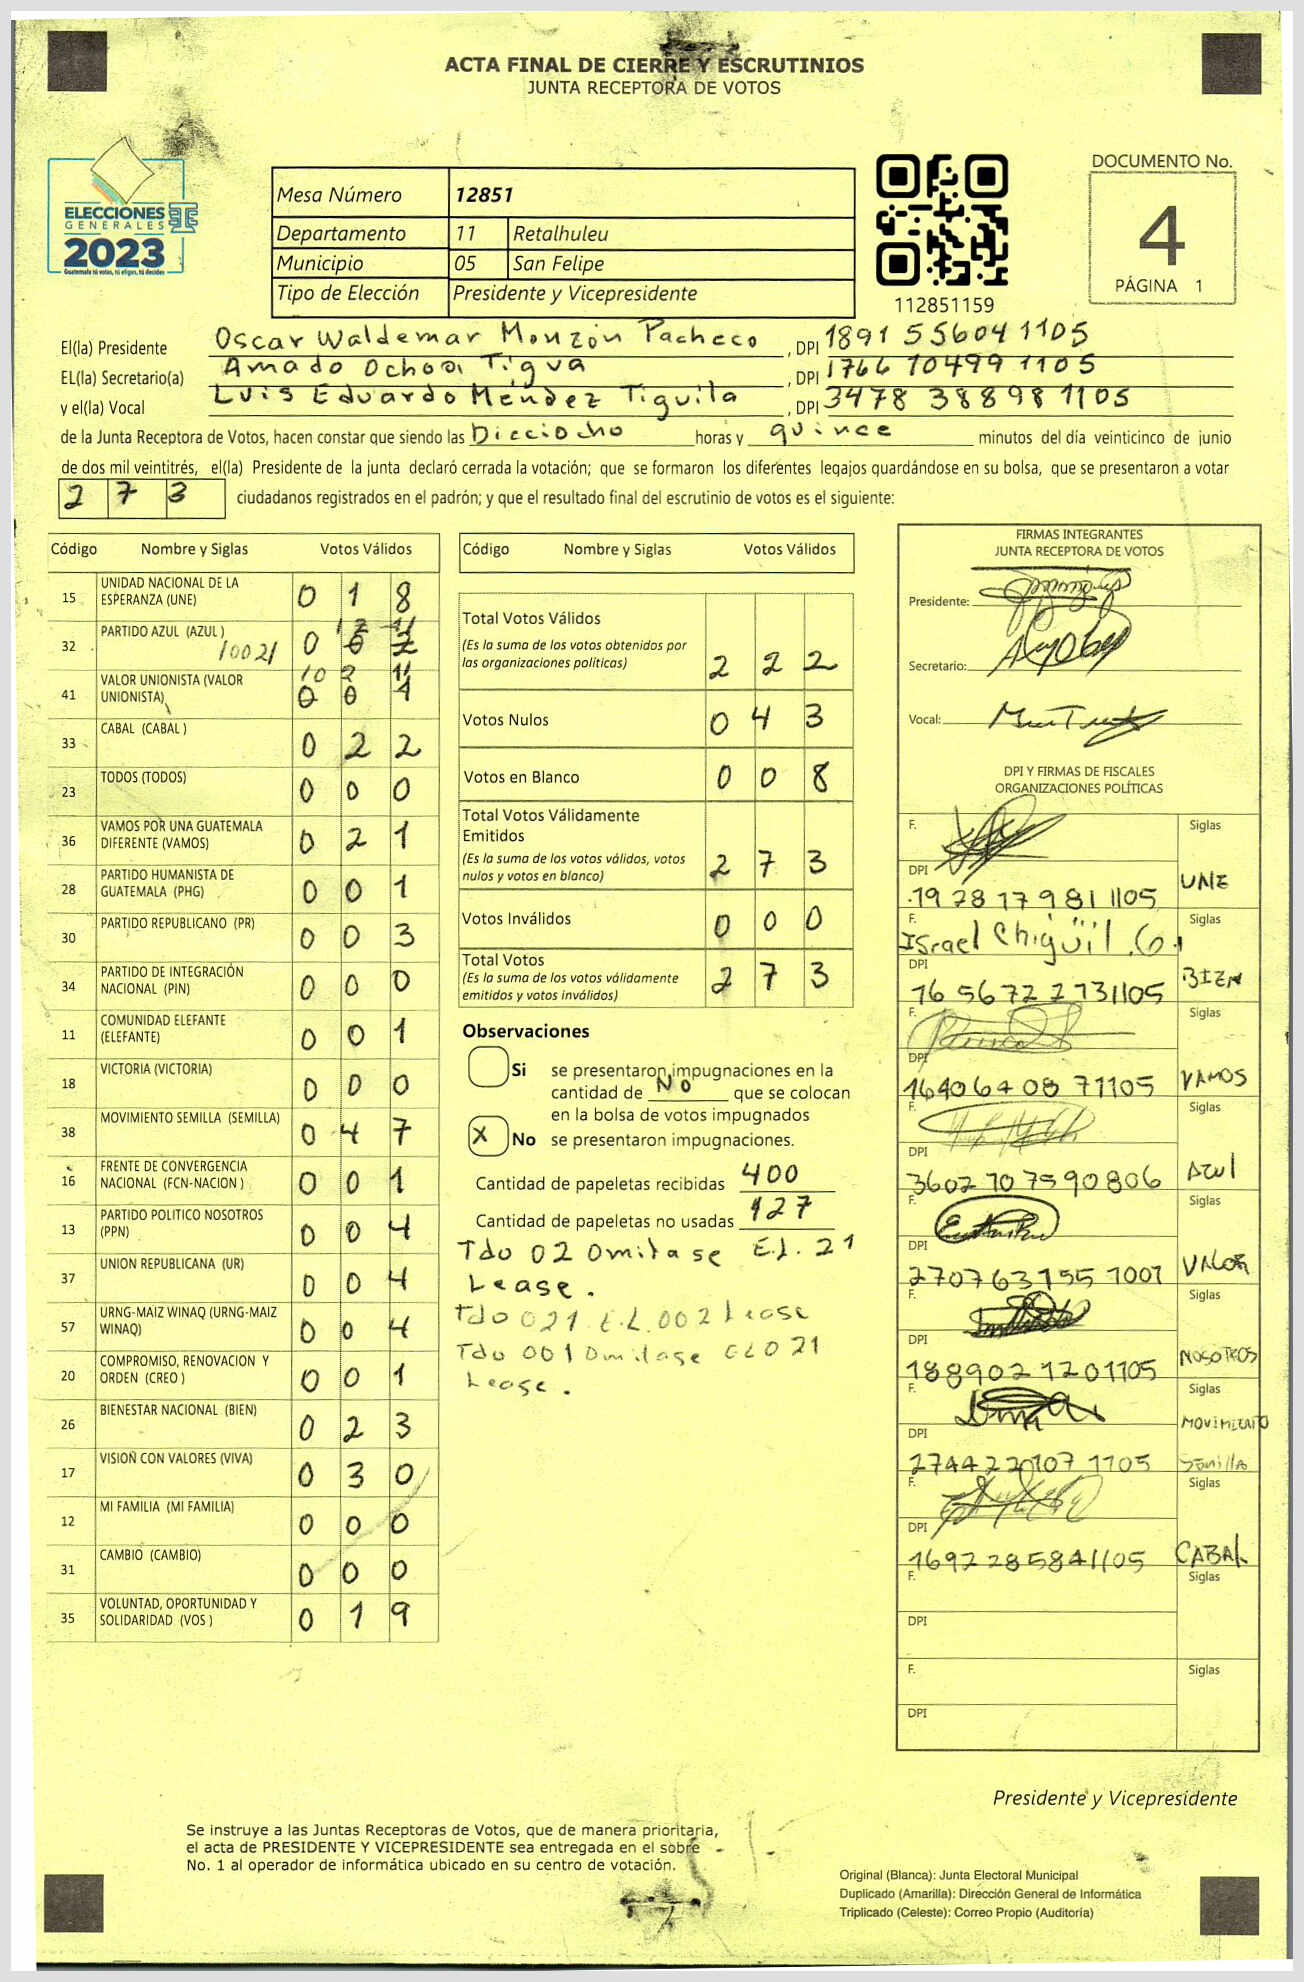 ACTA FINAL DE CIERRE Y ESCRUTINIOS
JUNTA RECEPTORA DE VOTOS
ELECCIONES
GENERALES
2023
Guatemala tú votas, tú eliges, tú decides
Mesa Número 12851
Departamento 11 Retalhuleu
Municipio 05 San Felipe
Tipo de Elección Presidente y Vicepresidente
112851159
DOCUMENTO No.
4
PÁGINA 1
El(la) Presidente Oscar Waldemar Monzón Pacheco, DPI 1891 55604 1105
EL(la) Secretario(a) Amado Ochoa Tigva, DPI 1766 10499 1105
y el(la) Vocal Luis Eduardo Méndez Tiguila, DPI 3478 38898 1105
de la Junta Receptora de Votos, hacen constar que siendo las Dieciocho horas y quince minutos del día veinticinco de junio
de dos mil veintitrés, el(la) Presidente de la junta declaró cerrada la votación; que se formaron los diferentes legajos guardándose en su bolsa, que se presentaron a votar
273 ciudadanos registrados en el padrón; y que el resultado final del escrutinio de votos es el siguiente:
Código Nombre y Siglas Votos Válidos
15 UNIDAD NACIONAL DE LA ESPERANZA (UNE) 0 1 8
32 PARTIDO AZUL (AZUL)
41 VALOR UNIONISTA (VALOR UNIONISTA)
33 CABAL (CABAL) 0 2 2
23 TODOS (TODOS) 0 0 0
36 VAMOS POR UNA GUATEMALA DIFERENTE (VAMOS) 0 2 1
28 PARTIDO HUMANISTA DE GUATEMALA (PHG) 0 0 1
30 PARTIDO REPUBLICANO (PR) 0 0 3
34 PARTIDO DE INTEGRACIÓN NACIONAL (PIN) 0 0 0
11 COMUNIDAD ELEFANTE (ELEFANTE) 0 0 1
18 VICTORIA (VICTORIA) 0 0 0
38 MOVIMIENTO SEMILLA (SEMILLA) 0 4 7
16 FRENTE DE CONVERGENCIA NACIONAL (FCN-NACION) 0 0 1
13 PARTIDO POLITICO NOSOTROS (PPN) 0 0 4
37 UNION REPUBLICANA (UR) 0 0 4
57 URNG-MAIZ WINAQ (URNG-MAIZ WINAQ) 0 0 4
20 COMPROMISO, RENOVACION Y ORDEN (CREO) 0 0 1
26 BIENESTAR NACIONAL (BIEN) 0 2 3
17 VISION CON VALORES (VIVA) 0 3 0
12 MI FAMILIA (MI FAMILIA) 0 0 0
31 CAMBIO (CAMBIO) 0 0 0
35 VOLUNTAD, OPORTUNIDAD Y SOLIDARIDAD (VOS) 0 1 9
Código Nombre y Siglas Votos Válidos
Total Votos Válidos
(Es la suma de los votos obtenidos por
las organizaciones políticas) 2 2 2
Votos Nulos 0 4 3
Votos en Blanco 0 0 8
Total Votos Válidamente
Emitidos
(Es la suma de los votos válidos, votos
nulos y votos en blanco) 2 7 3
Votos Inválidos 0 0 0
Total Votos
(Es la suma de los votos válidamente
emitidos y votos inválidos) 2 7 3
Observaciones
Si se presentaron impugnaciones en la
cantidad de No que se colocan
en la bolsa de votos impugnados
X No se presentaron impugnaciones.
Cantidad de papeletas recibidas 400
Cantidad de papeletas no usadas 127
Tdo 02 Omitase E.L. 21
Lease.
Tdo 021 E.L. 002 Lease
Tdo 001 Omitase EL 021
Lease.
FIRMAS INTEGRANTES
JUNTA RECEPTORA DE VOTOS
Presidente:
Secretario:
Vocal:
DPI Y FIRMAS DE FISCALES
ORGANIZACIONES POLÍTICAS
F. Siglas
DPI 1928 17981 1105 UNE
F. Israel Chigüil .G. Siglas
DPI 16 5672 2731105 BIEN
F. Siglas
DPI 16406408 71105 VAMOS
F. Siglas
DPI 3602 70 7590806 Azul
F. Siglas
DPI 2707631551001 VALOR
F. Siglas
DPI 188902 1201105 NOSOTROS
F. Siglas
DPI 274422107 1105 MOVIMIENTO Semilla
F. Siglas
DPI 1692285841105 CABAL
F. Siglas
DPI
F. Siglas
DPI
Presidente y Vicepresidente
Se instruye a las Juntas Receptoras de Votos, que de manera prioritaria,
el acta de PRESIDENTE Y VICEPRESIDENTE sea entregada en el sobre
No. 1 al operador de informática ubicado en su centro de votación.
Original (Blanca): Junta Electoral Municipal
Duplicado (Amarilla): Dirección General de Informática
Triplicado (Celeste): Correo Propio (Auditoría)